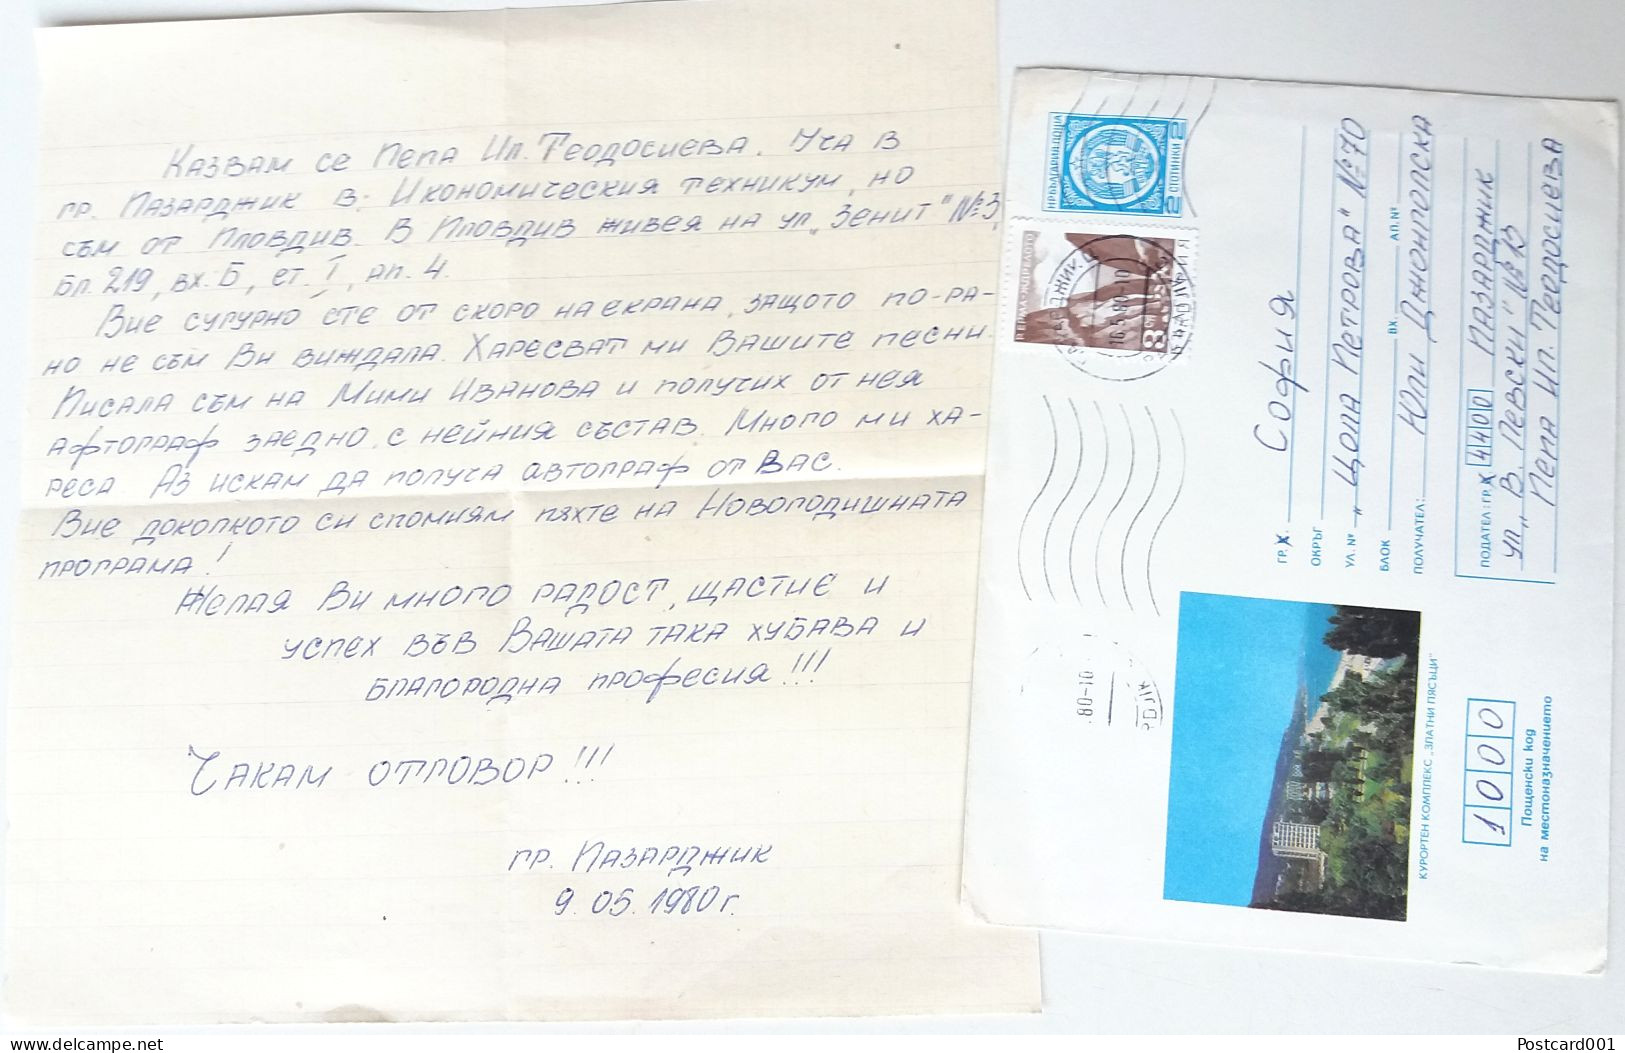 Казвам се Пепа Ил. Теодосиева. Уча в
гр. Пазарджик в: Икономическия техникум, но
съм от Пловдив. В Пловдив живея на ул. „Зенит" №3,
бл. 219, вх. Б, ет. I, ап. 4.
Вие сугурно сте от скоро на екрана, защото по-ра-
но не съм Ви виждала. Харесват ми Вашите песни.
Писала съм на Мими Иванова и получих от нея
афтограф заедно с нейния състав. Много ми ха-
реса. Аз искам да получа автограф от Вас.
Вие доколкото си спомням пяхте на Новогодишната
програма!
Желая Ви много радост, щастие и
успех във Вашата така хубава и
благородна професия!!!
Чакам отговор!!!
гр. Пазарджик
9.05.1980 г.
НР БЪЛГАРИЯ ПОЩА
2 СТОТИНКИ 2
8 СТ
16.5.80-10
80-10
ГР.Х. София
ОКРЪГ
УЛ. № „Цола Петрова" №70
БЛОК ВХ. АП. №
ПОЛУЧАТЕЛ: Юли
ПОДАТЕЛ: ГР.Х 4400 Пазарджик
ул. „В. Левски" №
Пепа Ил. Теодосиева
КУРОРТЕН КОМПЛЕКС „ЗЛАТНИ ПЯСЪЦИ"
1000
Пощенски код
на местоназначението
delcampe.net
Postcard001